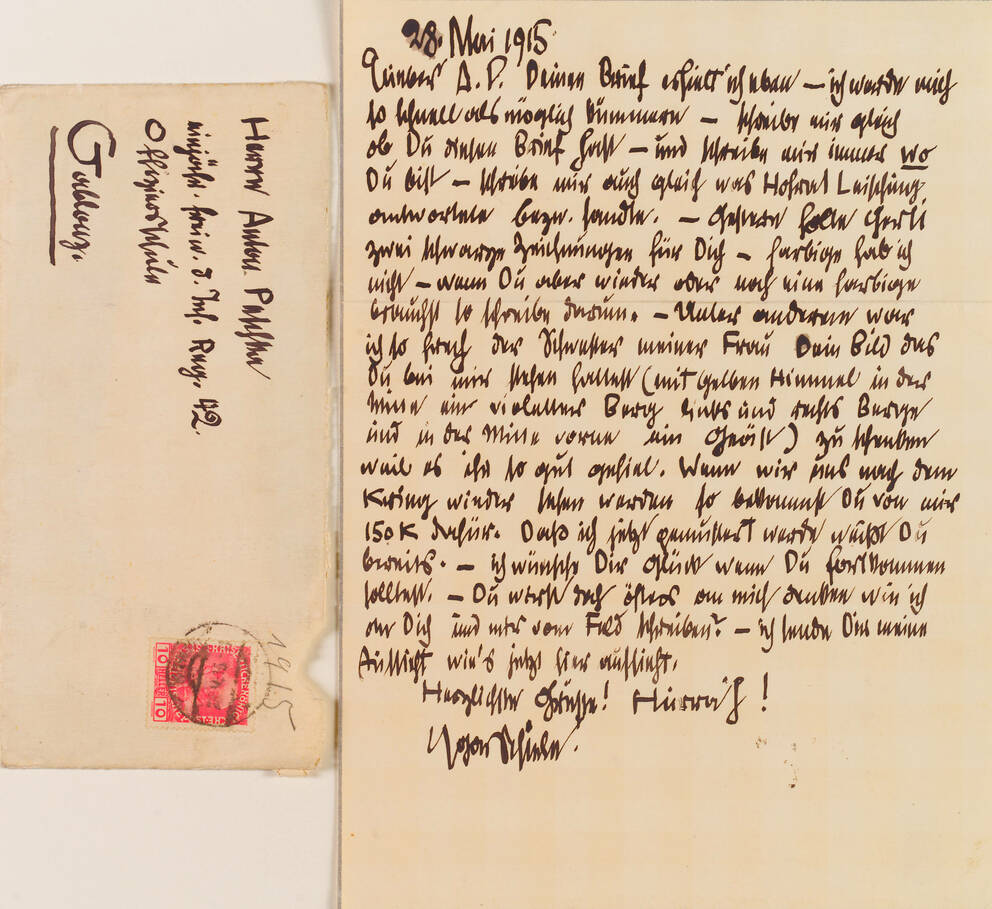 Herrn Anton Peschka
einjähr. freiw. d. Inf. Reg. 42.
Offiziersschule
Gablonz.
1915
10 HELLER 10
28. Mai 1915
Lieber A. P. Deinen Brief erhielt ich eben – ich werde mich
so schnell als möglich kümmern – schreibe mir gleich
ob Du diesen Brief hast – und schreibe mir immer wo
Du bist – schreibe mir auch gleich was Hofrat Leisching
antwortete bezw. sandte. – Gestern holte Gerti
zwei schwarze Zeichnungen für Dich – farbige hab ich
nicht – wenn Du aber wieder oder noch eine farbige
brauchst so schreibe darum. – Unter anderem war
ich so frech der Schwester meiner Frau Dein Bild das
Du bei mir stehen hattest (mit gelben Himmel in der
Mitte ein violetter Berg links und rechts Berge
und in der Mitte vorne ein Geäst) zu schenken
weil es ihr so gut gefiel. Wenn wir uns nach dem
Krieg wieder sehen werden so bekommst Du von mir
150 K dafür. Daß ich jetzt gemustert werde weißt Du
bereits. – ich wünsche Dir Glück wenn Du fortkommen
solltest. – Du wirst doch öfters an mich denken wie ich
an Dich und mir vom Feld schreiben? – ich sende Dir meine
Aussicht wie's jetzt hier aussieht.
Herzlichste Grüsse! Hurrah!
Egon Schiele.